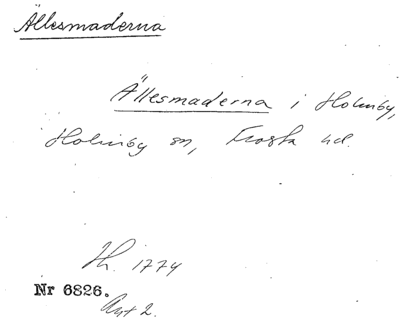 Ällesmaderna
Ällesmaderna i Holmby,
Holmby sn, Frosta hd.
Th. 1774
Nr 6826.
Akt 2.